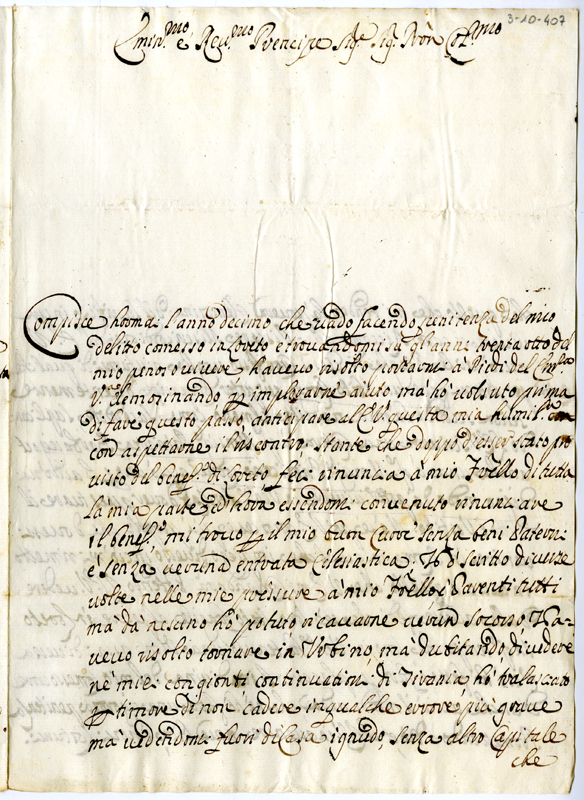 3-10-407
Emin.mo e Reu.mo Prencipe Sig.r Sig.r Pron Col.mo
Compisce hormai l'anno decimo che vado facendo penitenza del mio
delitto comesso in Loreto e trovandomi su gl'anni trenta otto del
mio penoso vivere havevo risolto portarmi à Piedi del
V.ro elemosinando per implorarne aiuto mà hò volsuto prima
di fare questo passo, anticipare al questa mia humil.
con aspettarne il riscontro, stante che doppo d'esser stato pro
visto del benef.o di Loreto feci rinuntia à mio Frello di tutta
la mia parte ed' hora essendomi convenuto rinuntiare
il benef.o mi trovo per il mio buon cuore senza beni Paterni
e senza veruna entrata Eclesiastica; Hò scritto diverse
volte nelle mie pressure à mio Frello, e Parenti tutti
mà da nesuno hò potuto ricavarne verun socorso Ha-
vevo risolto tornare in Urbino, mà dubitando di vedere
ne miei congionti continuationi di Tirania hò tralasciato
per timore di non cadere in qualche errore più grave
mà vedendomi fuori di Casa ignudo, senza altro Capitale
che